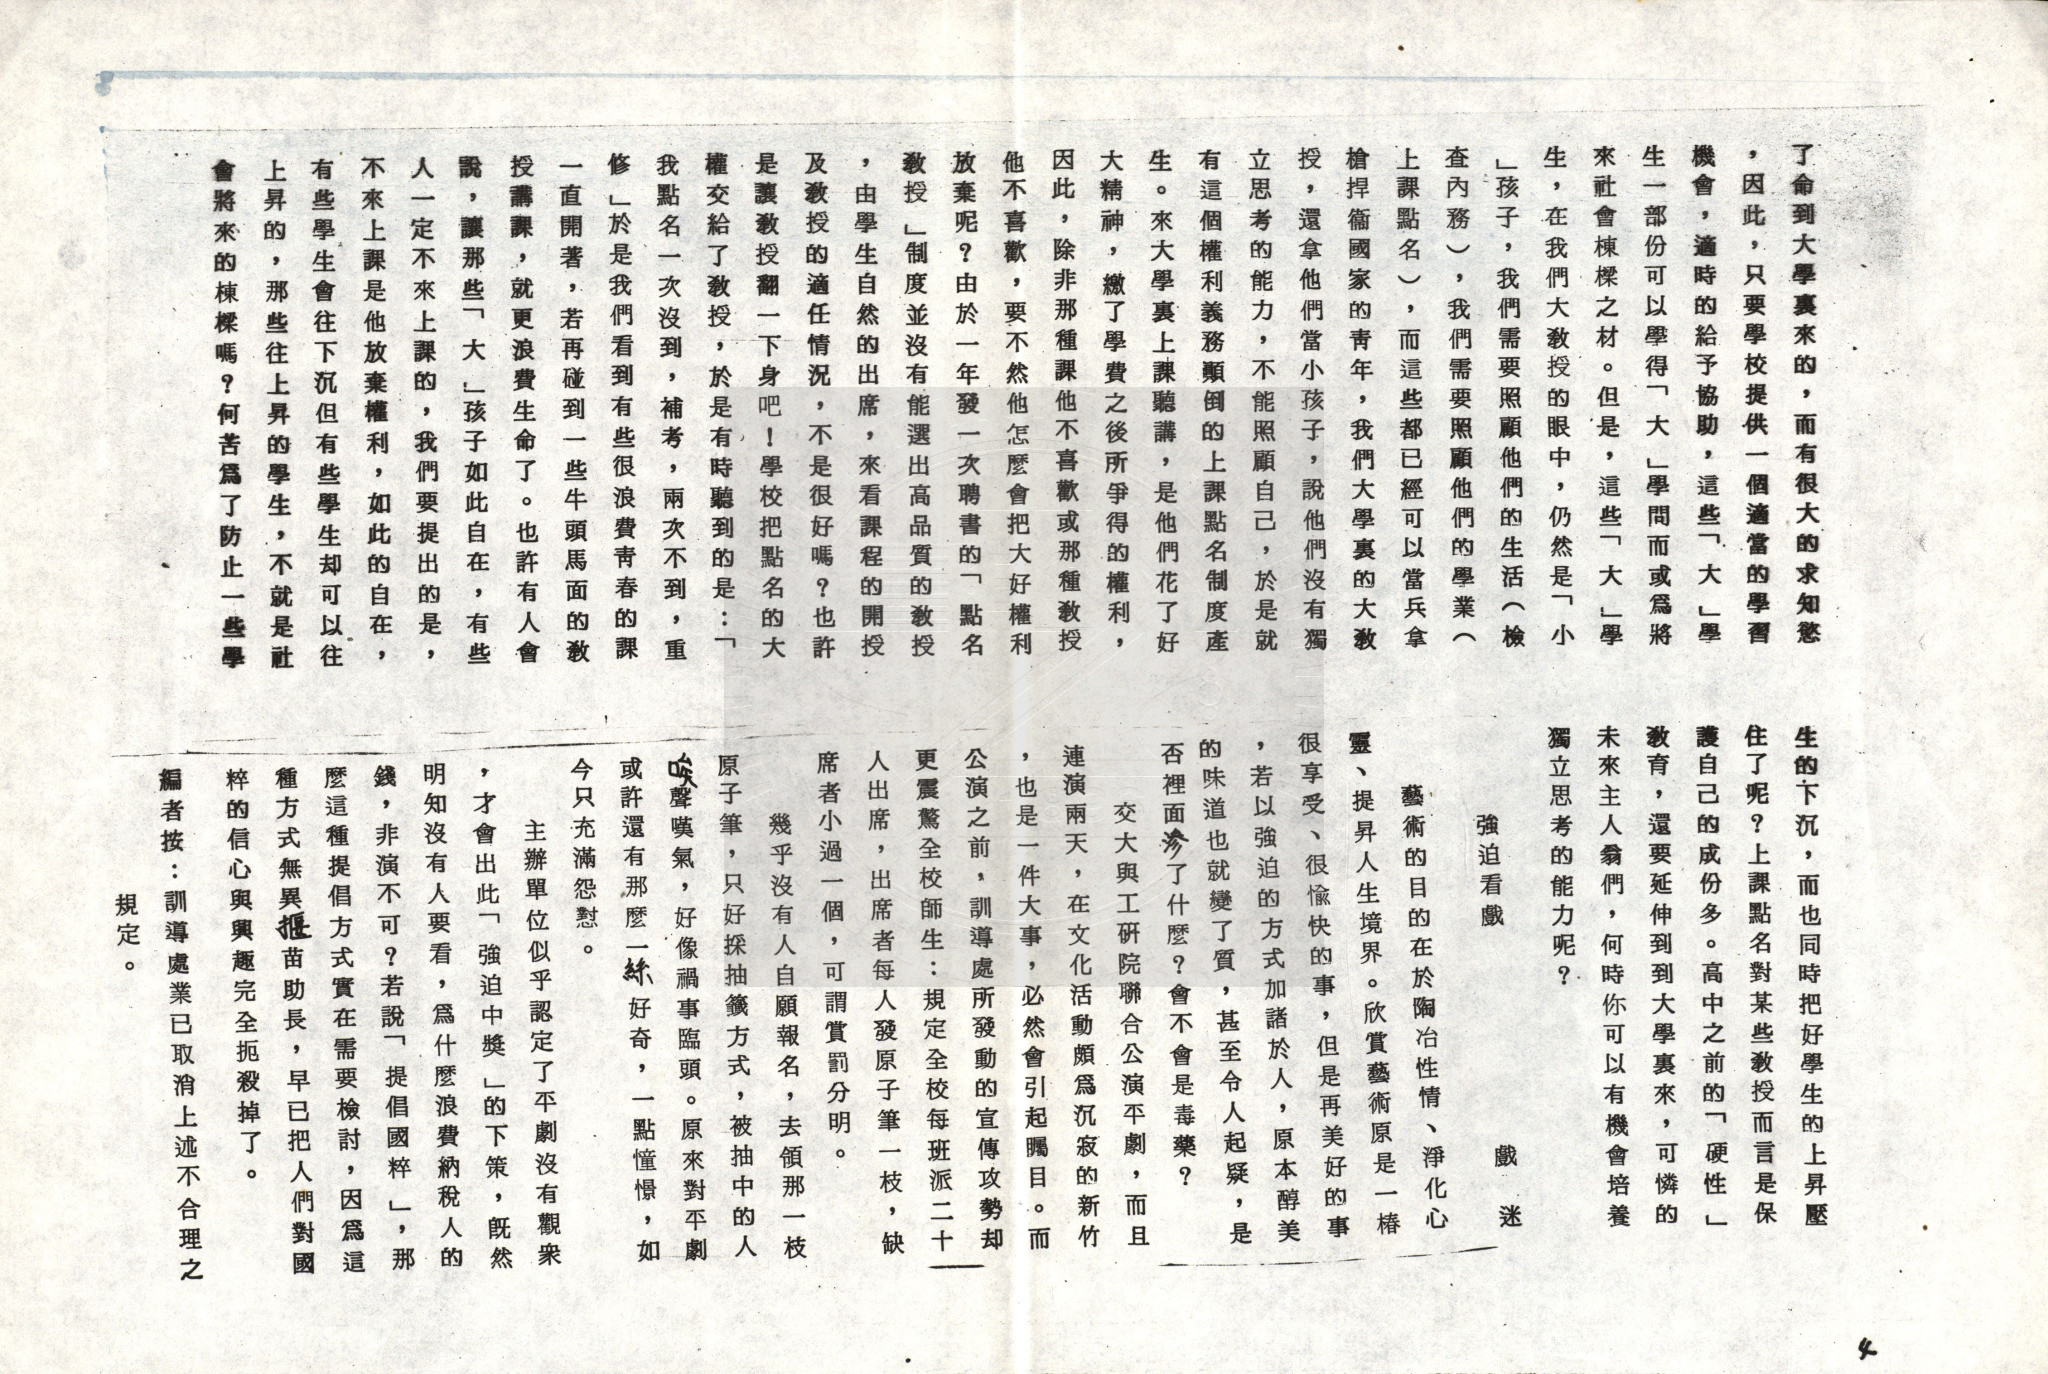 了命到大學裏來的，而有很大的求知慾
，因此，只要學校提供一個適當的學習
機會，適時的給予協助，這些「大」學
生一部份可以學得「大」學問而或爲將
來社會棟樑之材。但是，這些「大」學
生，在我們大教授的眼中，仍然是「小
」孩子，我們需要照顧他們的生活（檢
查內務），我們需要照顧他們的學業（
上課點名），而這些都已經可以當兵拿
槍捍衞國家的青年，我們大學裏的大教
授，還拿他們當小孩子，說他們沒有獨
立思考的能力，不能照顧自己，於是就
有這個權利義務顚倒的上課點名制度產
生。來大學裏上課聽講，是他們花了好
大精神，繳了學費之後所爭得的權利，
因此，除非那種課他不喜歡或那種教授
他不喜歡，要不然他怎麼會把大好權利
放棄呢？由於一年發一次聘書的「點名
教授」制度並沒有能選出高品質的教授
，由學生自然的出席，來看課程的開授
及教授的適任情況，不是很好嗎？也許
是讓教授翻一下身吧！學校把點名的大
權交給了教授，於是有時聽到的是：「
我點名一次沒到，補考，兩次不到，重
修」於是我們看到有些很浪費青春的課
一直開著，若再碰到一些牛頭馬面的教
授講課，就更浪費生命了。也許有人會
說，讓那些「大」孩子如此自在，有些
人一定不來上課的，我們要提出的是，
不來上課是他放棄權利，如此的自在，
有些學生會往下沉但有些學生却可以往
上昇的，那些往上昇的學生，不就是社
會將來的棟樑嗎？何苦爲了防止一些學
生的下沉，而也同時把好學生的上昇壓
住了呢？上課點名對某些教授而言是保
護自己的成份多。高中之前的「硬性」
教育，還要延伸到到大學裏來，可憐的
未來主人翁們，何時你可以有機會培養
獨立思考的能力呢？
強迫看戲
戲迷
藝術的目的在於陶冶性情、淨化心
靈、提昇人生境界。欣賞藝術原是一樁
很享受、很愉快的事，但是再美好的事
，若以強迫的方式加諸於人，原本醇美
的味道也就變了質，甚至令人起疑，是
否裡面滲了什麼？會不會是毒藥？
交大與工研院聯合公演平劇，而且
連演兩天，在文化活動頗爲沉寂的新竹
，也是一件大事，必然會引起矚目。而
公演之前，訓導處所發動的宣傳攻勢却
更震驚全校師生：規定全校每班派二十
人出席，出席者每人發原子筆一枝，缺
席者小過一個，可謂賞罰分明。
幾乎沒有人自願報名，去領那一枝
原子筆，只好採抽籤方式，被抽中的人
唉聲嘆氣，好像禍事臨頭。原來對平劇
或許還有那麼一絲好奇，一點憧憬，如
今只充滿怨懟。
主辦單位似乎認定了平劇沒有觀衆
，才會出此「強迫中獎」的下策，既然
明知沒有人要看，爲什麼浪費納稅人的
錢，非演不可？若說「提倡國粹」，那
麼這種提倡方式實在需要檢討，因爲這
種方式無異揠苗助長，早已把人們對國
粹的信心與興趣完全扼殺掉了。
編者按：訓導處業已取消上述不合理之
規定。
4